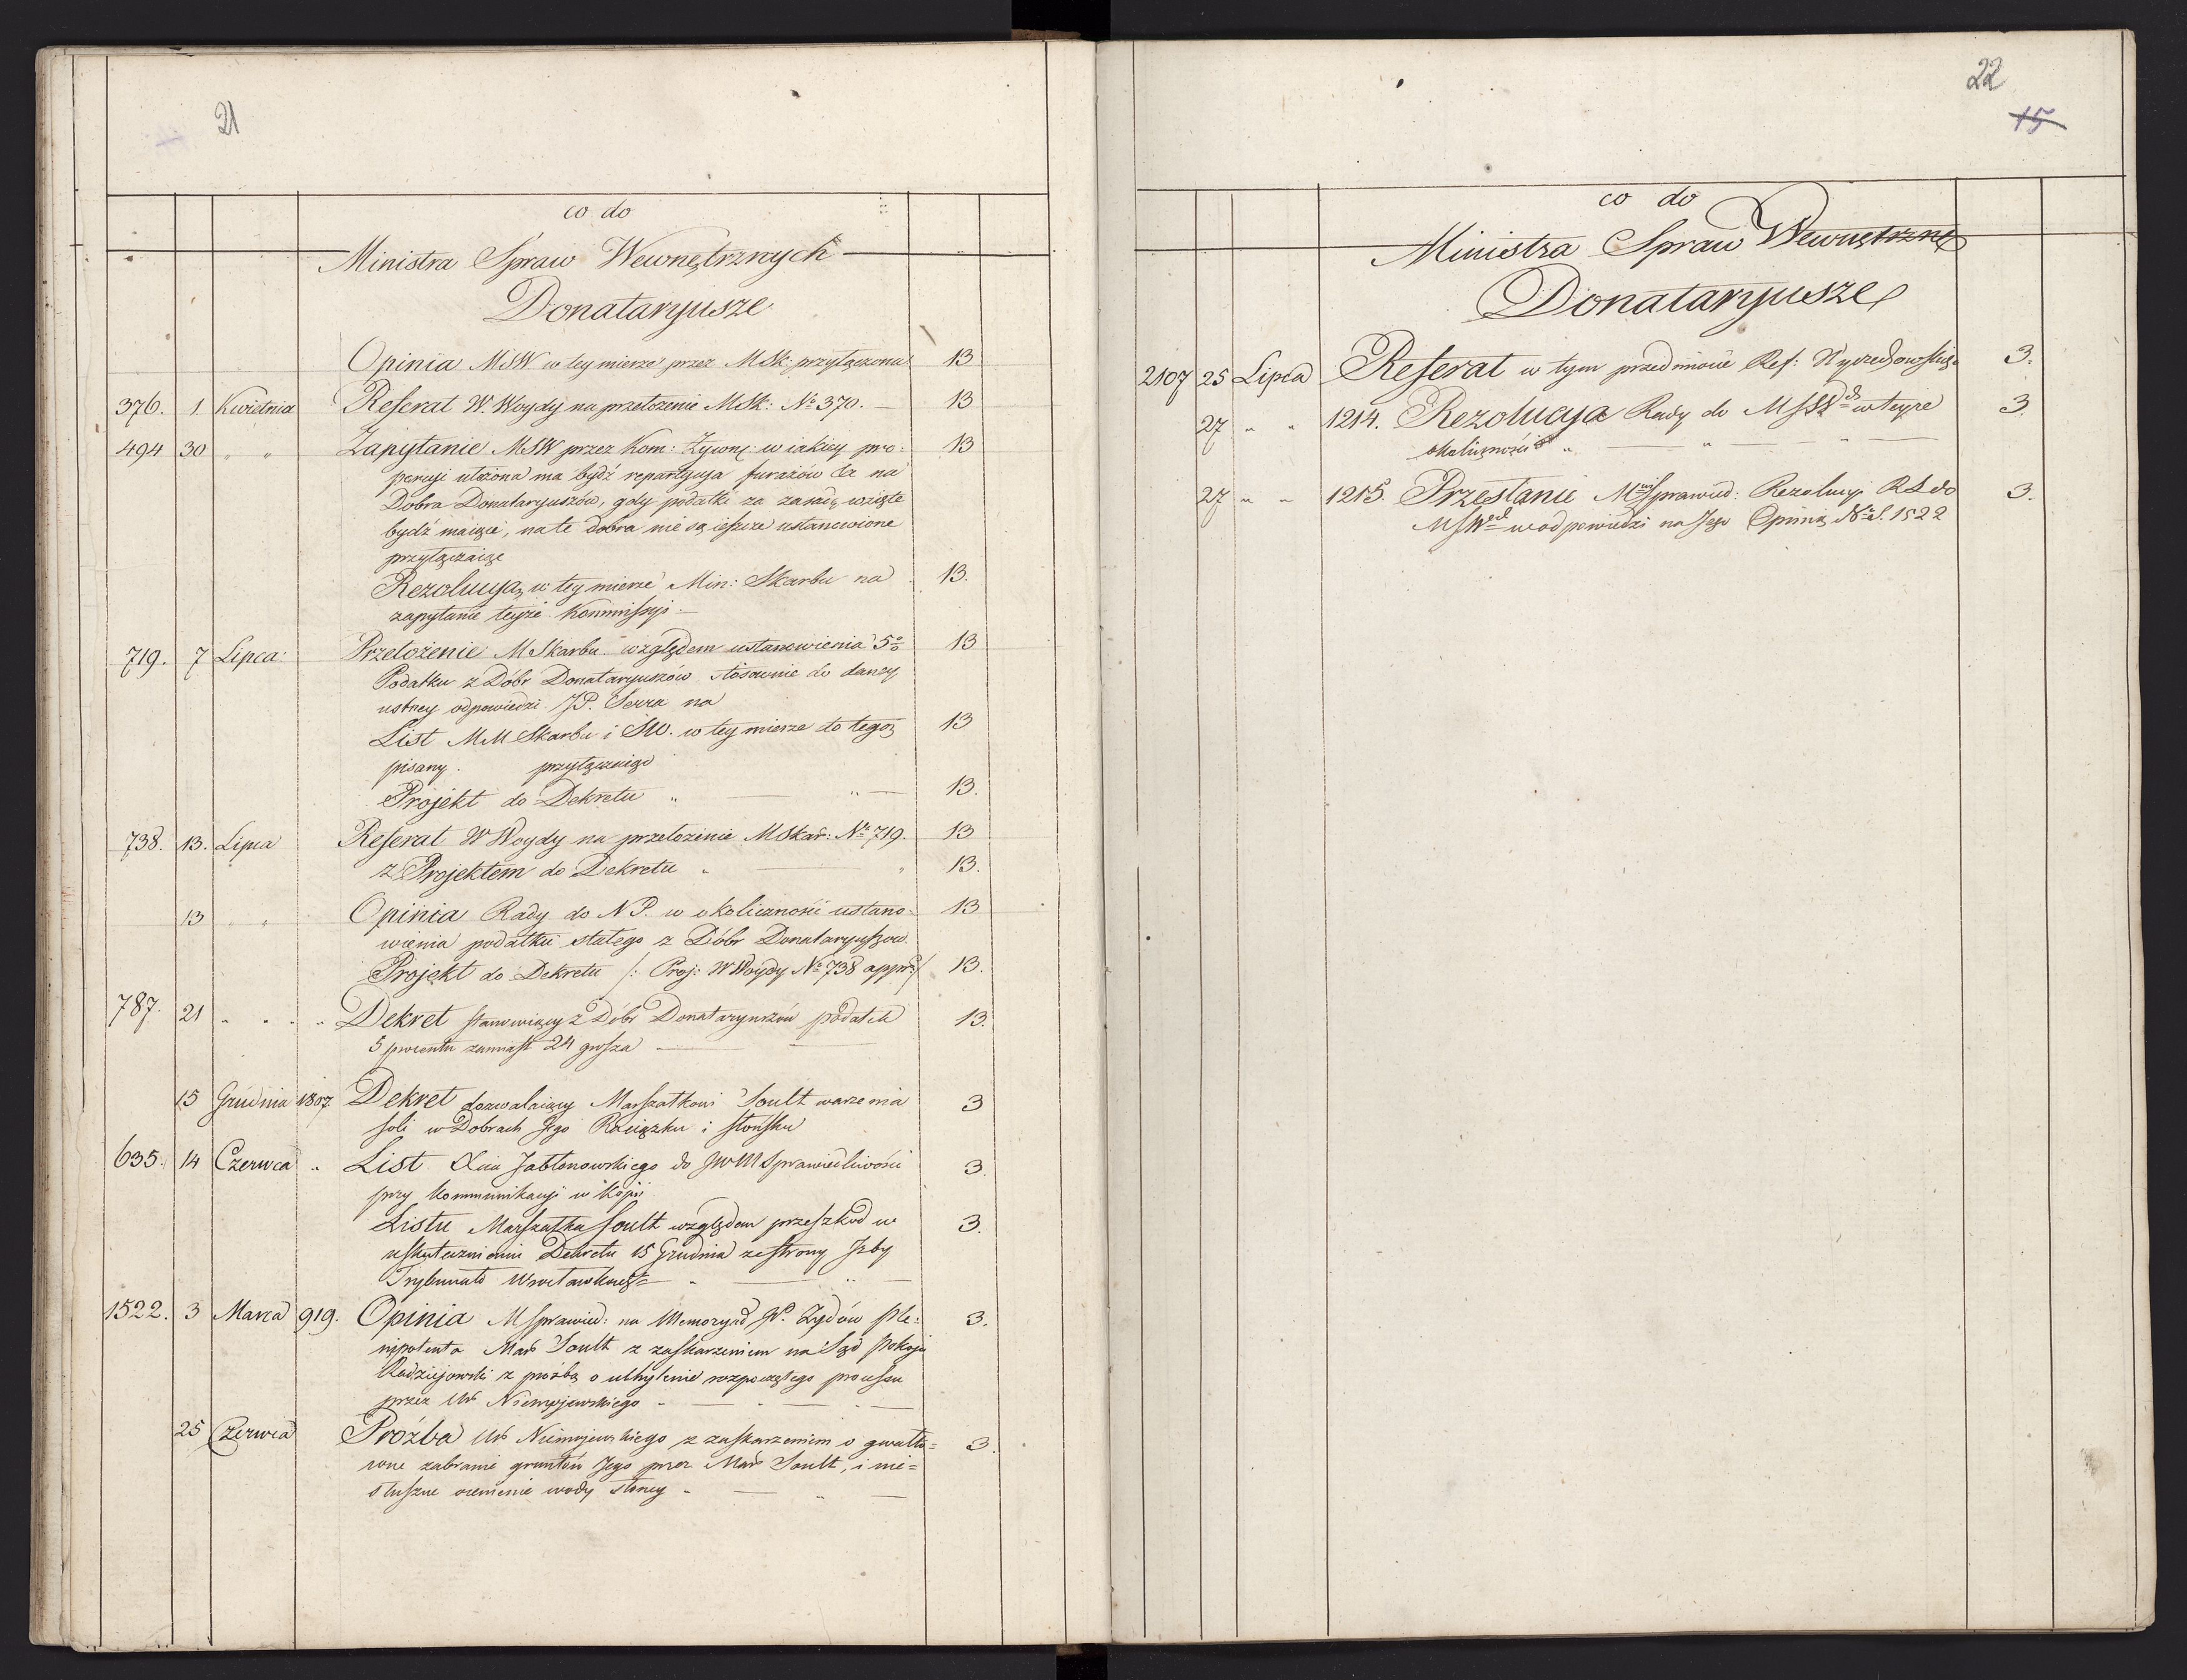 21
co do
Ministra Spraw Wewnętrznych
Donataryusze
Opinia MSW w tey mierze przez MSk: przyłączona 13
376. 1 Kwietnia Referat W. Woydy na przełożenie MSk: No 370. — 13
494 30 " " Zapytanie MSW przez Kom: Żywn: w iakiey pro: 13
porcyi ułożona ma bydź repartycya furażów &c na
Dobra Donataryuszów, gdy podatki za zasadę wzięte
bydź maiące, na te dobra nie są ieszcze ustanowione
przyłączaiąc
Rezolucya w tey mierze Min: Skarbu na 13.
zapytanie teyże Kommissyi —
719. 7 Lipca: Przełożenie MSkarbu względem ustanowienia 5% 13
Podatku z Dóbr Donataryuszów stósownie do daney
ustney odpowiedzi JP. Serra na
List MM Skarbu i SW. w tey mierze do tegoż 13
pisany. przyłączaiąc
Projekt do Dekretu " — " — 13.
738. 13. Lipca Referat W Woydy na przełożenie MSkar: No 719. 13
z Projektem do Dekretu " — " 13.
13 " " Opinia Rady do NP. w okoliczności ustano- 13
wienia podatku stałego z Dóbr Donataryuszow.
Projekt do Dekretu /: Proj: W Woydy No 738 appr:/ 13.
787. 21 " " " Dekret stanowiący z Dóbr Donataryuszów podatek 13.
5 procentu zamiast 24 grosza —
15 Grudnia 1807. Dekret dozwalaiący Marszałkowi Soult warzenia 3
soli w Dobrach Jego Raciążku i Słońsku
635. 14 Czerwca " List Xcia Jabłonowskiego do JWM Sprawiedliwości 3.
przy kommunikacyi w kopii
Listu Marszałka Soult względem przeszkod w 3.
uskutecznieniu Dekretu 15 Grudnia ze strony Izby
Trybunału —
1522. 3 Marca 919. Opinia MSprawied: na Memoryał JP. Żydów ple: 3.
nipotenta Mar Soult z zaskarzeniem na Sąd Pokoju
Radziejowski z prośbą o uchylenie rozpoczętego processu
przez Ur Niemojewskiego " — " — " —
25 Czerwca Próżba Ur Niemojewskiego z zaskarzeniem o gwałto= 3.
wne zabranie gruntów Jego przez Mar Soult, i nie=
słuszne wody słoney " — " —
22
15
co do
Ministra Spraw Wewnętrzne
Donataryusze
2107 25 Lipca Referat w tym przedmiocie Ref: Wyczechowskiego 3.
27 " " 1214. Rezolucya Rady do MSW w teyże 3.
okoliczności " — " — " —
27 " " 1215. Przesłanie MSprawied: Rezolucyi RS do 3.
MSW w odpowiedzi na Jego Opinią No 1522